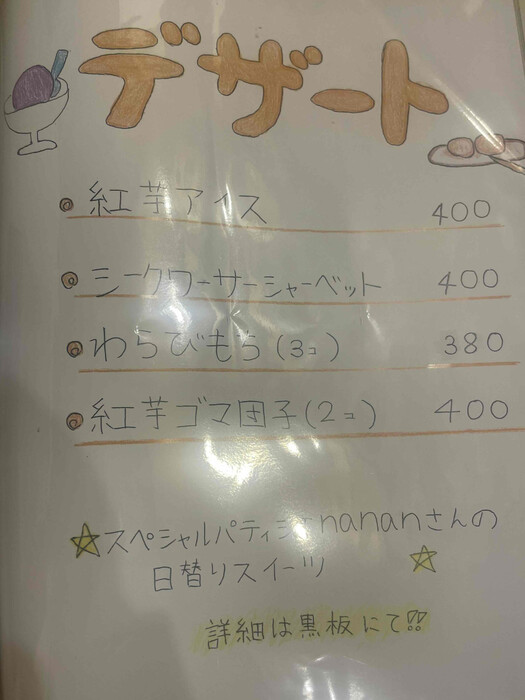 デザート
紅芋アイス 400
シークワーサーシャーベット 400
わらびもち(3コ) 380
紅芋ゴマ団子(2コ) 400
☆スペシャルパティシエnananさんの
日替りスイーツ ☆
詳細は黒板にて!!